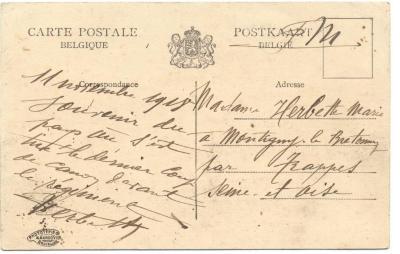 CARTE POSTALE
BELGIQUE
POSTKAART
BELGIË
F M
Correspondance
Adresse
11 novembre 1918
Souvenir du
pays où s'est
tiré le dernier coup
de canon devant
le régiment
Herbette
Madame Herbette Marie
a Montigny le Bretonneux
par Trappes
Seine et Oise